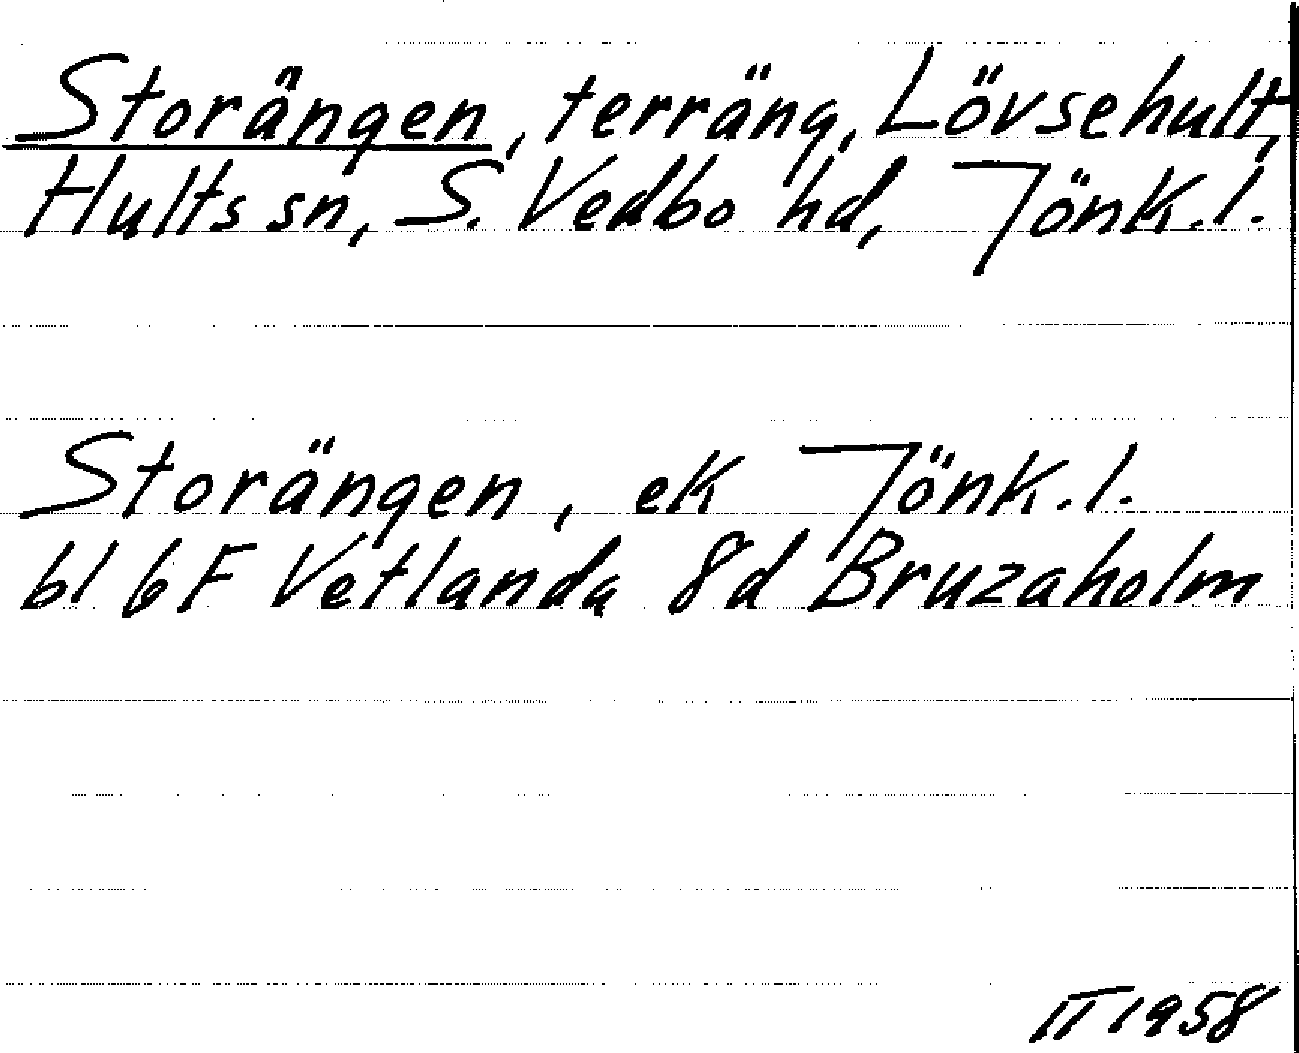 Storängen, terräng, Lövsehult,
Hults sn, S. Vedbo hd, Jönk.l.
Storängen, ek Jönk.l.
bl 6F Vetlanda 8d Bruzaholm
II 1958